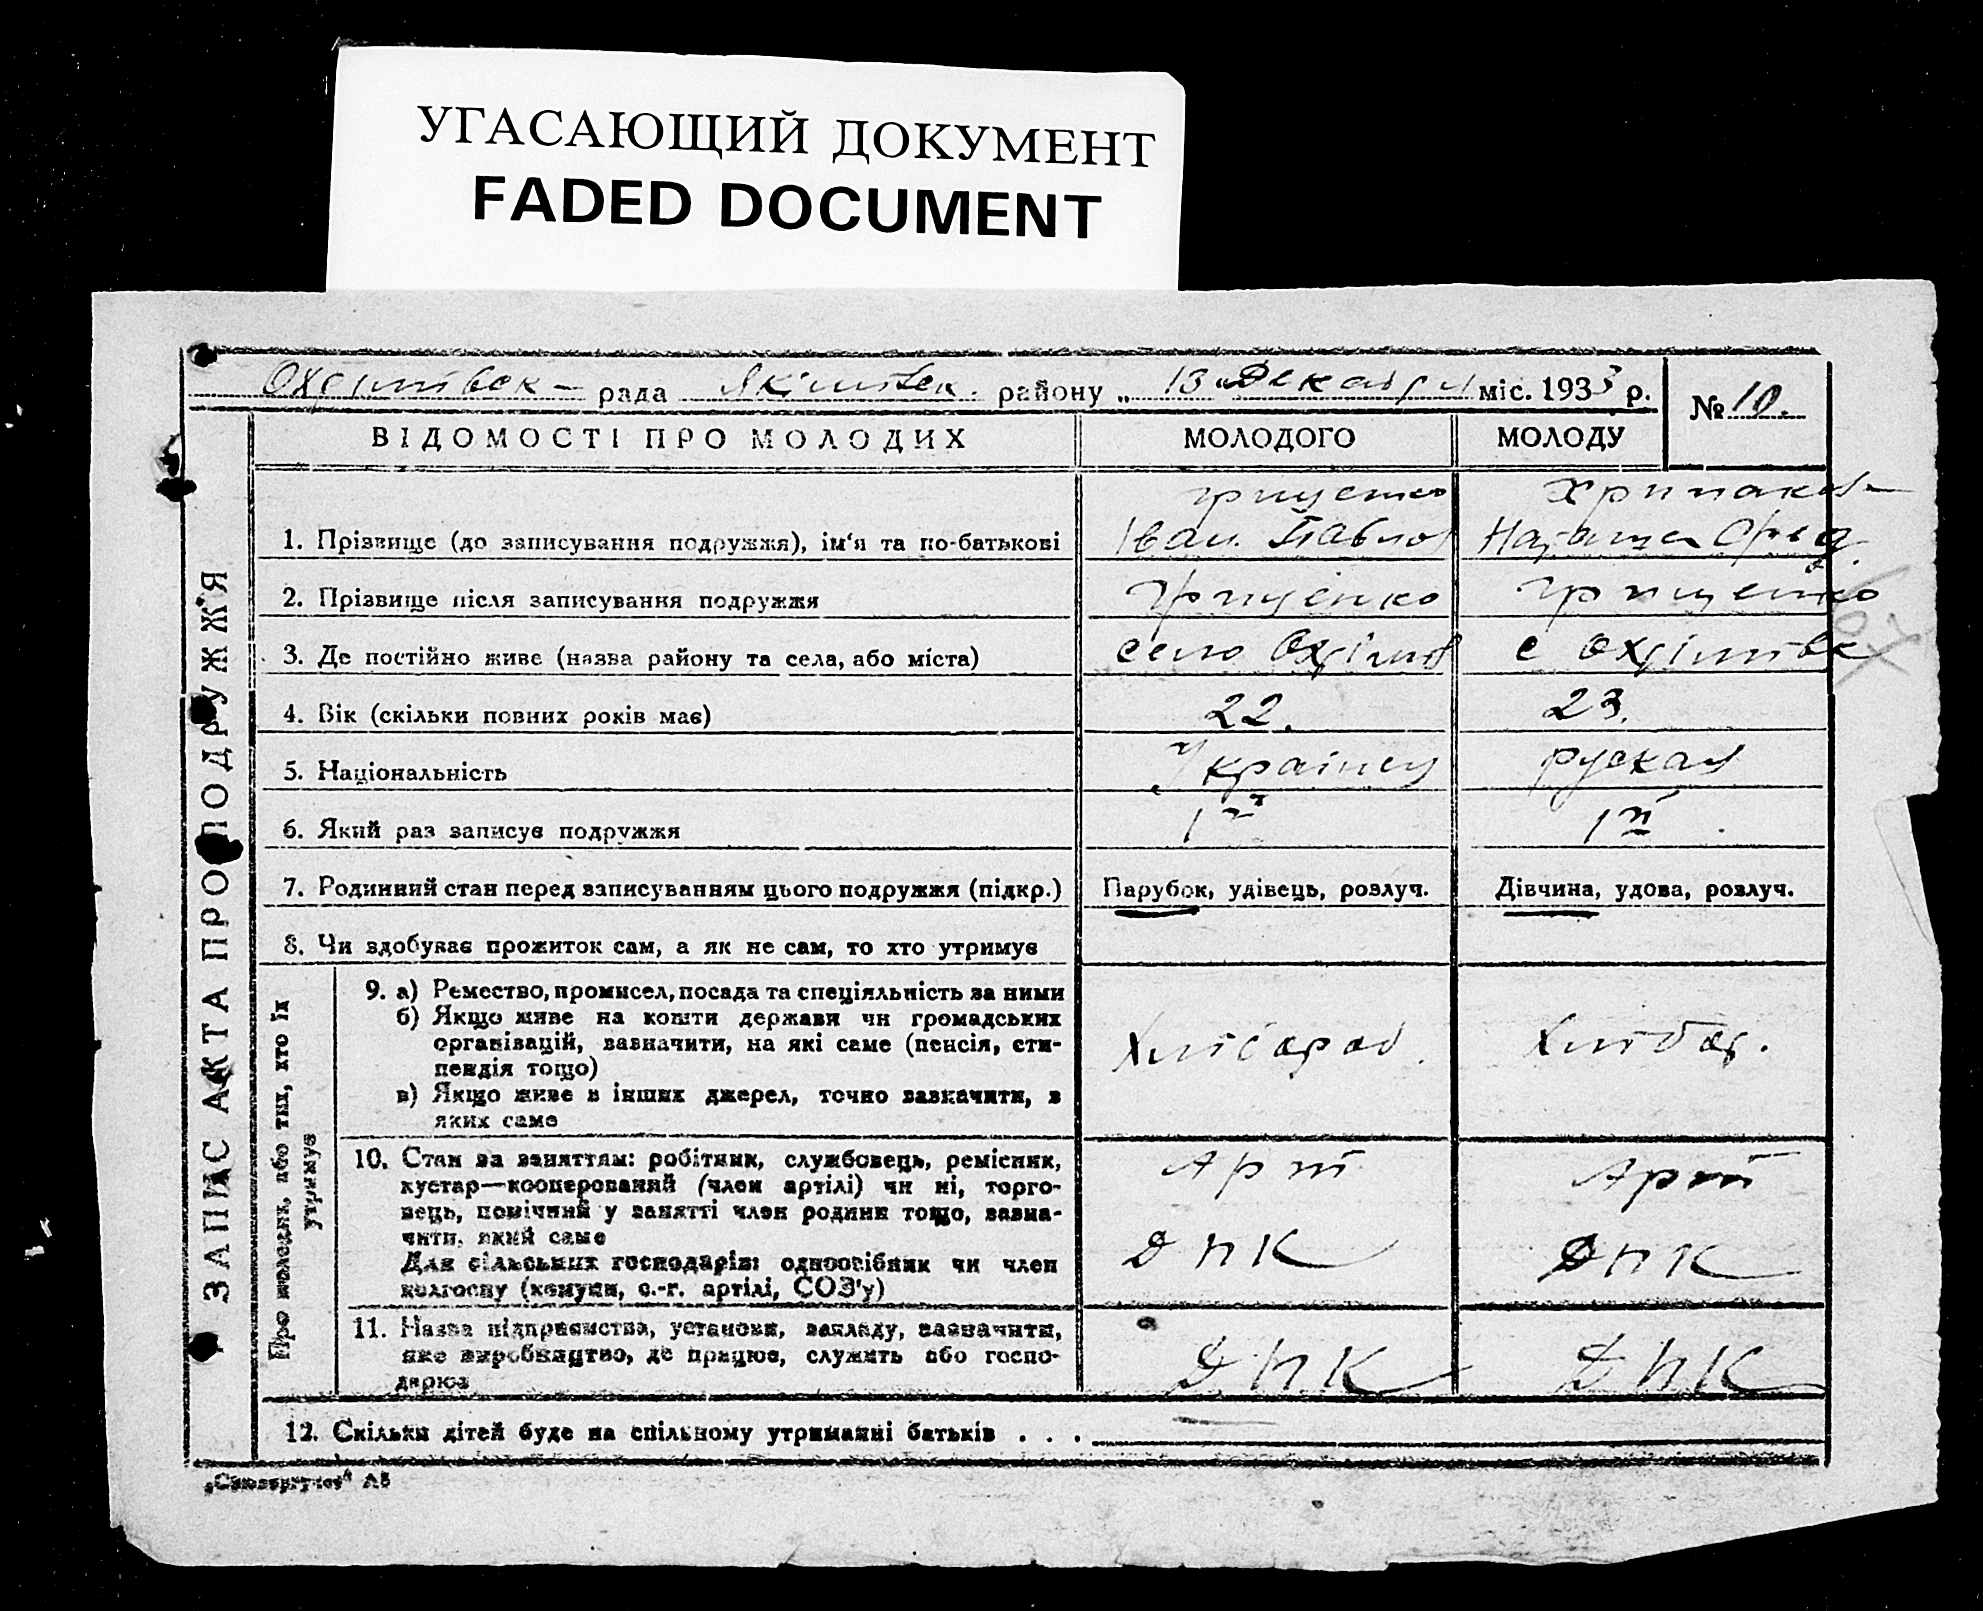 УГАСАЮЩИЙ ДОКУМЕНТ
FADED DOCUMENT
рада Якімівськ. району „ 13 " Декабря міс. 1933 р.
№ 10.
ЗАПИС АКТА ПРО ПОДРУЖЖ'Я
ВІДОМОСТІ ПРО МОЛОДИХ МОЛОДОГО МОЛОДУ
Грищенко
1. Прізвище (до записування подружжя), ім'я та по-батькові Іван Павлов
2. Прізвище після записування подружжя Грищенко Грищенко
3. Де постійно живе (назва району та села, або міста) село Охрімів с Охрімівк
4. Вік (скільки повних років має) 22. 23.
5. Національність Українец руская
6. Який раз записує подружжя 1й 1й
7. Родинний стан перед записуванням цього подружжя (підкр.) Парубок, удівець, розлуч. Дівчина, удова, розлуч.
8. Чи здобуває прожиток сам, а як не сам, то хто утримує
Про молодих, або тих, хто їх
утримує
9. а) Ремество, промисел, посада та спеціяльність за ними
б) Якщо живе на кошти держави чи громадських
організацій, зазначити, на які саме (пенсія, сти-
пендія тощо)
в) Якщо живе з інших джерел, точно зазначити, з
яких саме
Хлібороб. Хлібор.
10. Стан за заняттям: робітник, службовець, ремісник,
кустар—кооперований (член артілі) чи ні, торго-
вець, помічний у занятті член родини тощо, зазна-
чити, який саме
Для сільських господарів: одноосібник чи член
колгоспу (комуни, с.-г. артілі, СОЗ'у)
Арт Арт
ДНК ДНК
11. Назва підприємства, установи, закладу, зазначити,
яке виробництво, де працює, служить або госпо-
дарює
ДНК ДНК
12. Скільки дітей буде на спільному утриманні батьків . . .